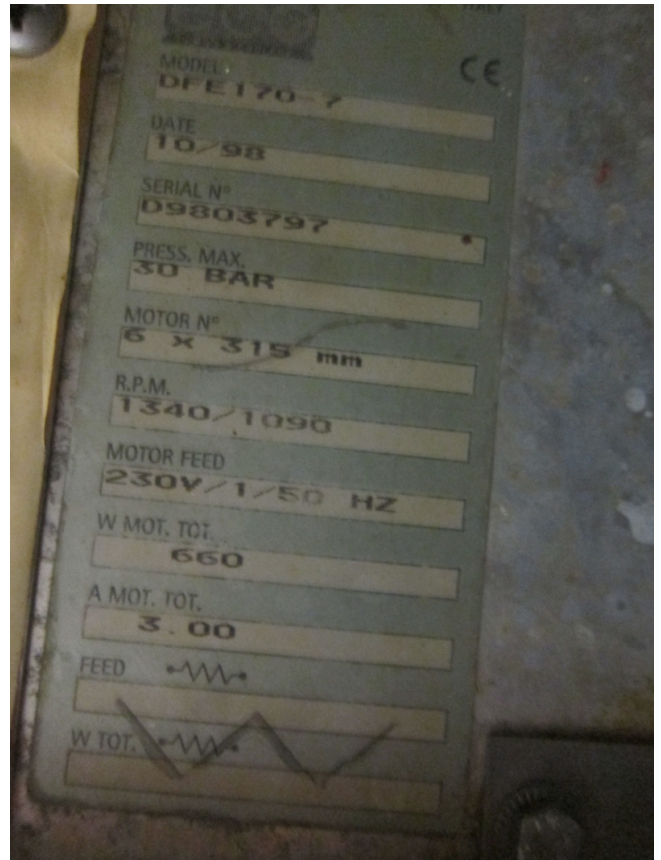 ITALY
CE
MODEL
DFE170-7
DATE
10/98
SERIAL N°
D9803797
PRESS. MAX.
30 BAR
MOTOR N°
6 x 315 mm
R.P.M.
1340/1090
MOTOR FEED
230V/1/50 HZ
W MOT. TOT.
660
A MOT. TOT.
3.00
FEED
W TOT.